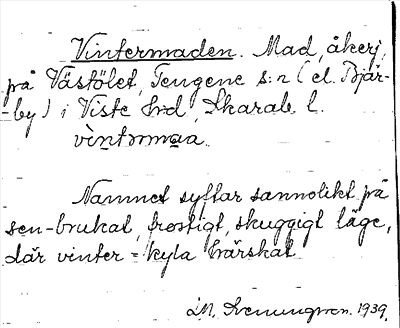 Vintermaden. Mad, åkerj.
på Västölet, Tengene s:n (el. Bjär-
-by) i Viste hrd, Skarab. l.
vìntərmaa.
Namnet syftar sannolikt på
sen-brukat, frostigt, skuggigt läge,
där vinter-kyla härskat
1939.